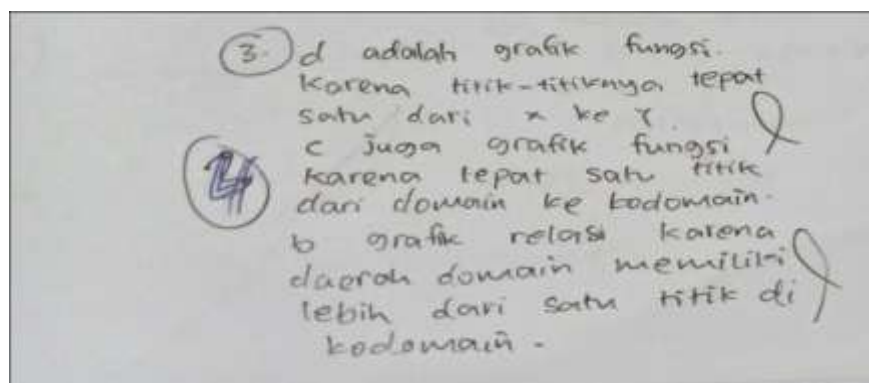 3. d adalah grafik fungsi.
Karena titik-titiknya tepat
satu dari x ke Y.
c juga grafik fungsi
karena tepat satu titik
dari domain ke kodomain.
4
b grafik relasi karena
daerah domain memiliki
lebih dari satu titik di
kodomain.